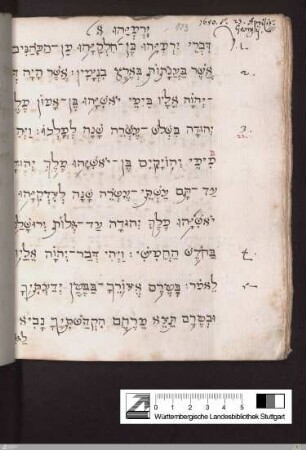 יִרְמְיָהוּ א 173
1680. d. 23. Aprilis
דִּבְרֵי יִרְמְיָהוּ בֶּן־חִלְקִיָּהוּ מִן־הַכֹּהֲנִים 1.
אֲשֶׁר בַּעֲנָתוֹת בְּאֶרֶץ בִּנְיָמִין: אֲשֶׁר הָיָה 2.
יְהוָה אֵלָיו בִּימֵי יֹאשִׁיָּהוּ בֶן־אָמוֹן מֶלֶ
יְהוּדָה בִּשְׁלֹשׁ־עֶשְׂרֵה שָׁנָה לְמָלְכוֹ: וַיְהִי 3.
בִּימֵי יְהוֹיָקִים בֶּן־יֹאשִׁיָּהוּ מֶלֶךְ יְהוּדָ
עַד־תֹּם עַשְׁתֵּי־עֶשְׂרֵה שָׁנָה לְצִדְקִיָּהוּ
יֹאשִׁיָּהוּ מֶלֶךְ יְהוּדָה עַד־גְּלוֹת יְרוּשָׁלַ
בַּחֹדֶשׁ הַחֲמִישִׁי: וַיְהִי דְבַר־יְהוָה אֵלַי 4.
לֵאמֹר: בְּטֶרֶם אֶצּוֹרְךָ בַבֶּטֶן יְדַעְתִּיךָ 5
וּבְטֶרֶם תֵּצֵא מֵרֶחֶם הִקְדַּשְׁתִּיךָ נָבִיא
0 1 2 3 4 5
Württembergische Landesbibliothek Stuttgart